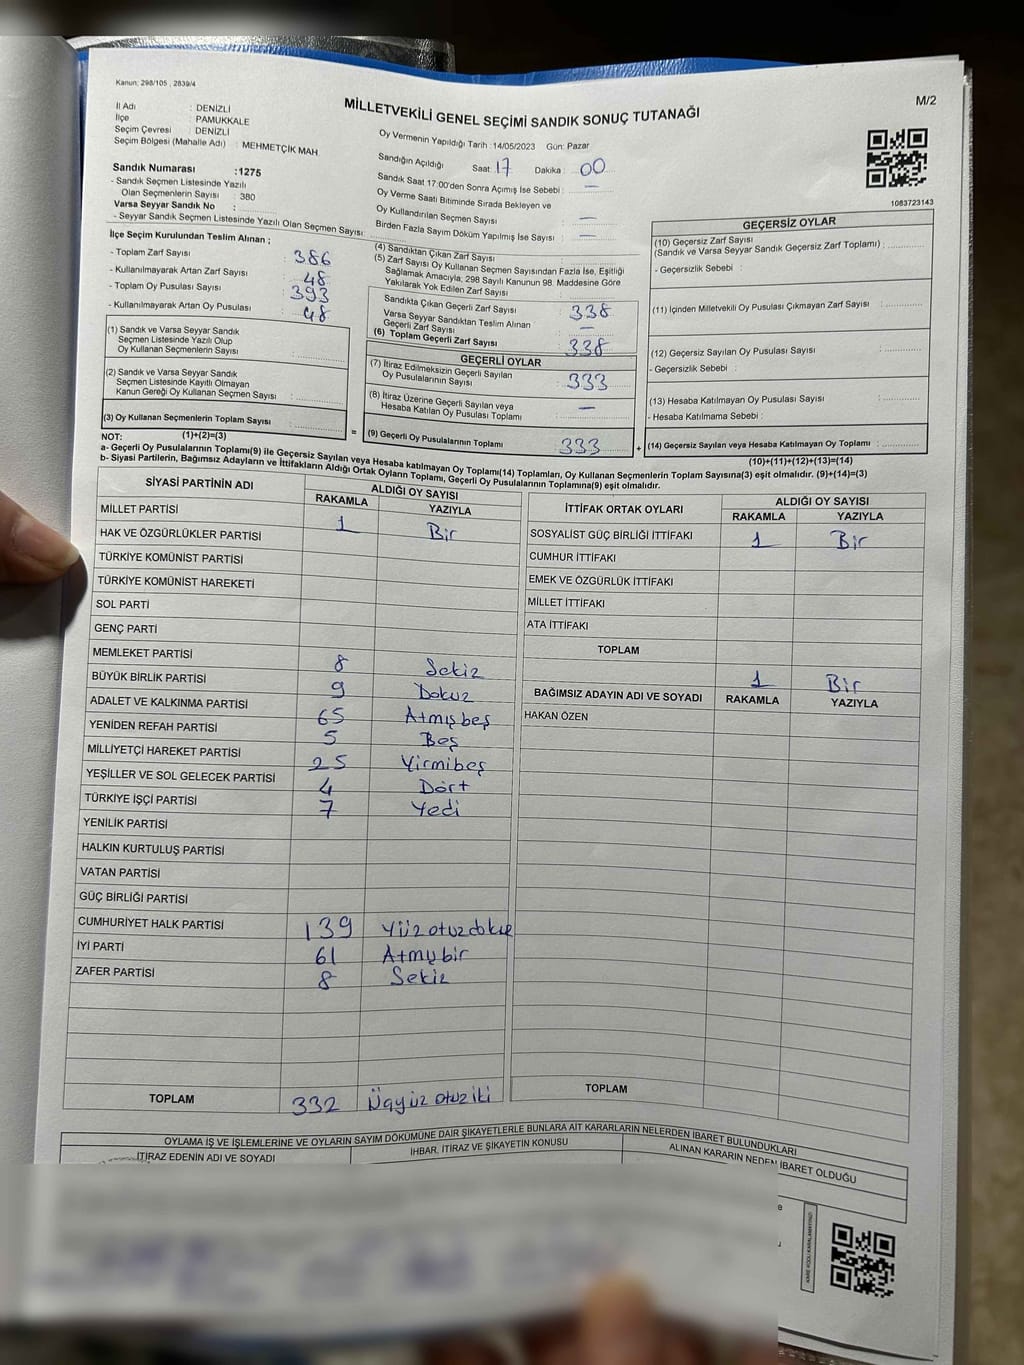 Kanun: 298/105 , 2839/4
M/2
MİLLETVEKİLİ GENEL SEÇİMİ SANDIK SONUÇ TUTANAĞI
İl Adı : DENİZLİ
İlçe : PAMUKKALE
Seçim Çevresi : DENİZLİ
Seçim Bölgesi (Mahalle Adı) : MEHMETÇİK MAH.
Sandık Numarası :1275
- Sandık Seçmen Listesinde Yazılı
Olan Seçmenlerin Sayısı : 380
Varsa Seyyar Sandık No :
- Seyyar Sandık Seçmen Listesinde Yazılı Olan Seçmen Sayısı :
İlçe Seçim Kurulundan Teslim Alınan ;
- Toplam Zarf Sayısı : 386
- Kullanılmayarak Artan Zarf Sayısı : 48
- Toplam Oy Pusulası Sayısı : 393
- Kullanılmayarak Artan Oy Pusulası : 48
(1) Sandık ve Varsa Seyyar Sandık
Seçmen Listesinde Yazılı Olup
Oy Kullanan Seçmenlerin Sayısı :
(2) Sandık ve Varsa Seyyar Sandık
Seçmen Listesinde Kayıtlı Olmayan
Kanun Gereği Oy Kullanan Seçmen Sayısı :
(3) Oy Kullanan Seçmenlerin Toplam Sayısı :
(1)+(2)=(3)
Oy Vermenin Yapıldığı Tarih :14/05/2023 Gün: Pazar
Sandığın Açıldığı Saat : 17 Dakika : 00
Sandık Saat 17:00'den Sonra Açımış İse Sebebi : —
Oy Verme Saati Bitiminde Sırada Bekleyen ve
Oy Kullandırılan Seçmen Sayısı : —
Birden Fazla Sayım Döküm Yapılmış İse Sayısı : —
(4) Sandıktan Çıkan Zarf Sayısı :
(5) Zarf Sayısı Oy Kullanan Seçmen Sayısından Fazla İse, Eşitliği
Sağlamak Amacıyla, 298 Sayılı Kanunun 98. Maddesine Göre
Yakılarak Yok Edilen Zarf Sayısı :
Sandıkta Çıkan Geçerli Zarf Sayısı : 338
Varsa Seyyar Sandıktan Teslim Alınan
Geçerli Zarf Sayısı : —
(6) Toplam Geçerli Zarf Sayısı : 338
GEÇERLİ OYLAR
(7) İtiraz Edilmeksizin Geçerli Sayılan
Oy Pusulalarının Sayısı : 333
(8) İtiraz Üzerine Geçerli Sayılan veya
Hesaba Katılan Oy Pusulası Toplamı : —
= (9) Geçerli Oy Pusulalarının Toplamı : 333 +
1083723143
GEÇERSİZ OYLAR
(10) Geçersiz Zarf Sayısı
(Sandık ve Varsa Seyyar Sandık Geçersiz Zarf Toplamı) :
- Geçersizlik Sebebi :
(11) İçinden Milletvekili Oy Pusulası Çıkmayan Zarf Sayısı :
(12) Geçersiz Sayılan Oy Pusulası Sayısı :
- Geçersizlik Sebebi :
(13) Hesaba Katılmayan Oy Pusulası Sayısı :
- Hesaba Katılmama Sebebi :
(14) Geçersiz Sayılan veya Hesaba Katılmayan Oy Toplamı :
(10)+(11)+(12)+(13)=(14)
NOT:
a- Geçerli Oy Pusulalarının Toplamı(9) ile Geçersiz Sayılan veya Hesaba katılmayan Oy Toplamı(14) Toplamları, Oy Kullanan Seçmenlerin Toplam Sayısına(3) eşit olmalıdır. (9)+(14)=(3)
b- Siyasi Partilerin, Bağımsız Adayların ve İttifakların Aldığı Ortak Oyların Toplamı, Geçerli Oy Pusulalarının Toplamına(9) eşit olmalıdır.
SİYASİ PARTİNİN ADI ALDIĞI OY SAYISI
RAKAMLA YAZIYLA
MİLLET PARTİSİ 1 Bir
HAK VE ÖZGÜRLÜKLER PARTİSİ
TÜRKİYE KOMÜNİST PARTİSİ
TÜRKİYE KOMÜNİST HAREKETİ
SOL PARTİ
GENÇ PARTİ
MEMLEKET PARTİSİ 8 Sekiz
BÜYÜK BİRLİK PARTİSİ 9 Dokuz
ADALET VE KALKINMA PARTİSİ 65 Atmışbeş
YENİDEN REFAH PARTİSİ 5 Beş
MİLLİYETÇİ HAREKET PARTİSİ 25 Yirmibeş
YEŞİLLER VE SOL GELECEK PARTİSİ 4 Dört
TÜRKİYE İŞÇİ PARTİSİ 7 Yedi
YENİLİK PARTİSİ
HALKIN KURTULUŞ PARTİSİ
VATAN PARTİSİ
GÜÇ BİRLİĞİ PARTİSİ
CUMHURİYET HALK PARTİSİ 139 Yüzotuzdokuz
İYİ PARTİ 61 Atmışbir
ZAFER PARTİSİ 8 Sekiz
TOPLAM 332 Üçyüz otuz iki
İTTİFAK ORTAK OYLARI ALDIĞI OY SAYISI
RAKAMLA YAZIYLA
SOSYALİST GÜÇ BİRLİĞİ İTTİFAKI 1 Bir
CUMHUR İTTİFAKI
EMEK VE ÖZGÜRLÜK İTTİFAKI
MİLLET İTTİFAKI
ATA İTTİFAKI
TOPLAM 1 Bir
BAĞIMSIZ ADAYIN ADI VE SOYADI RAKAMLA YAZIYLA
HAKAN ÖZEN
TOPLAM
OYLAMA İŞ VE İŞLEMLERİNE VE OYLARIN SAYIM DÖKÜMÜNE DAİR ŞİKAYETLERLE BUNLARA AİT KARARLARIN NELERDEN İBARET BULUNDUKLARI
İTİRAZ EDENİN ADI VE SOYADI İHBAR, İTİRAZ VE ŞİKAYETİN KONUSU ALINAN KARARIN NEDEN İBARET OLDUĞU